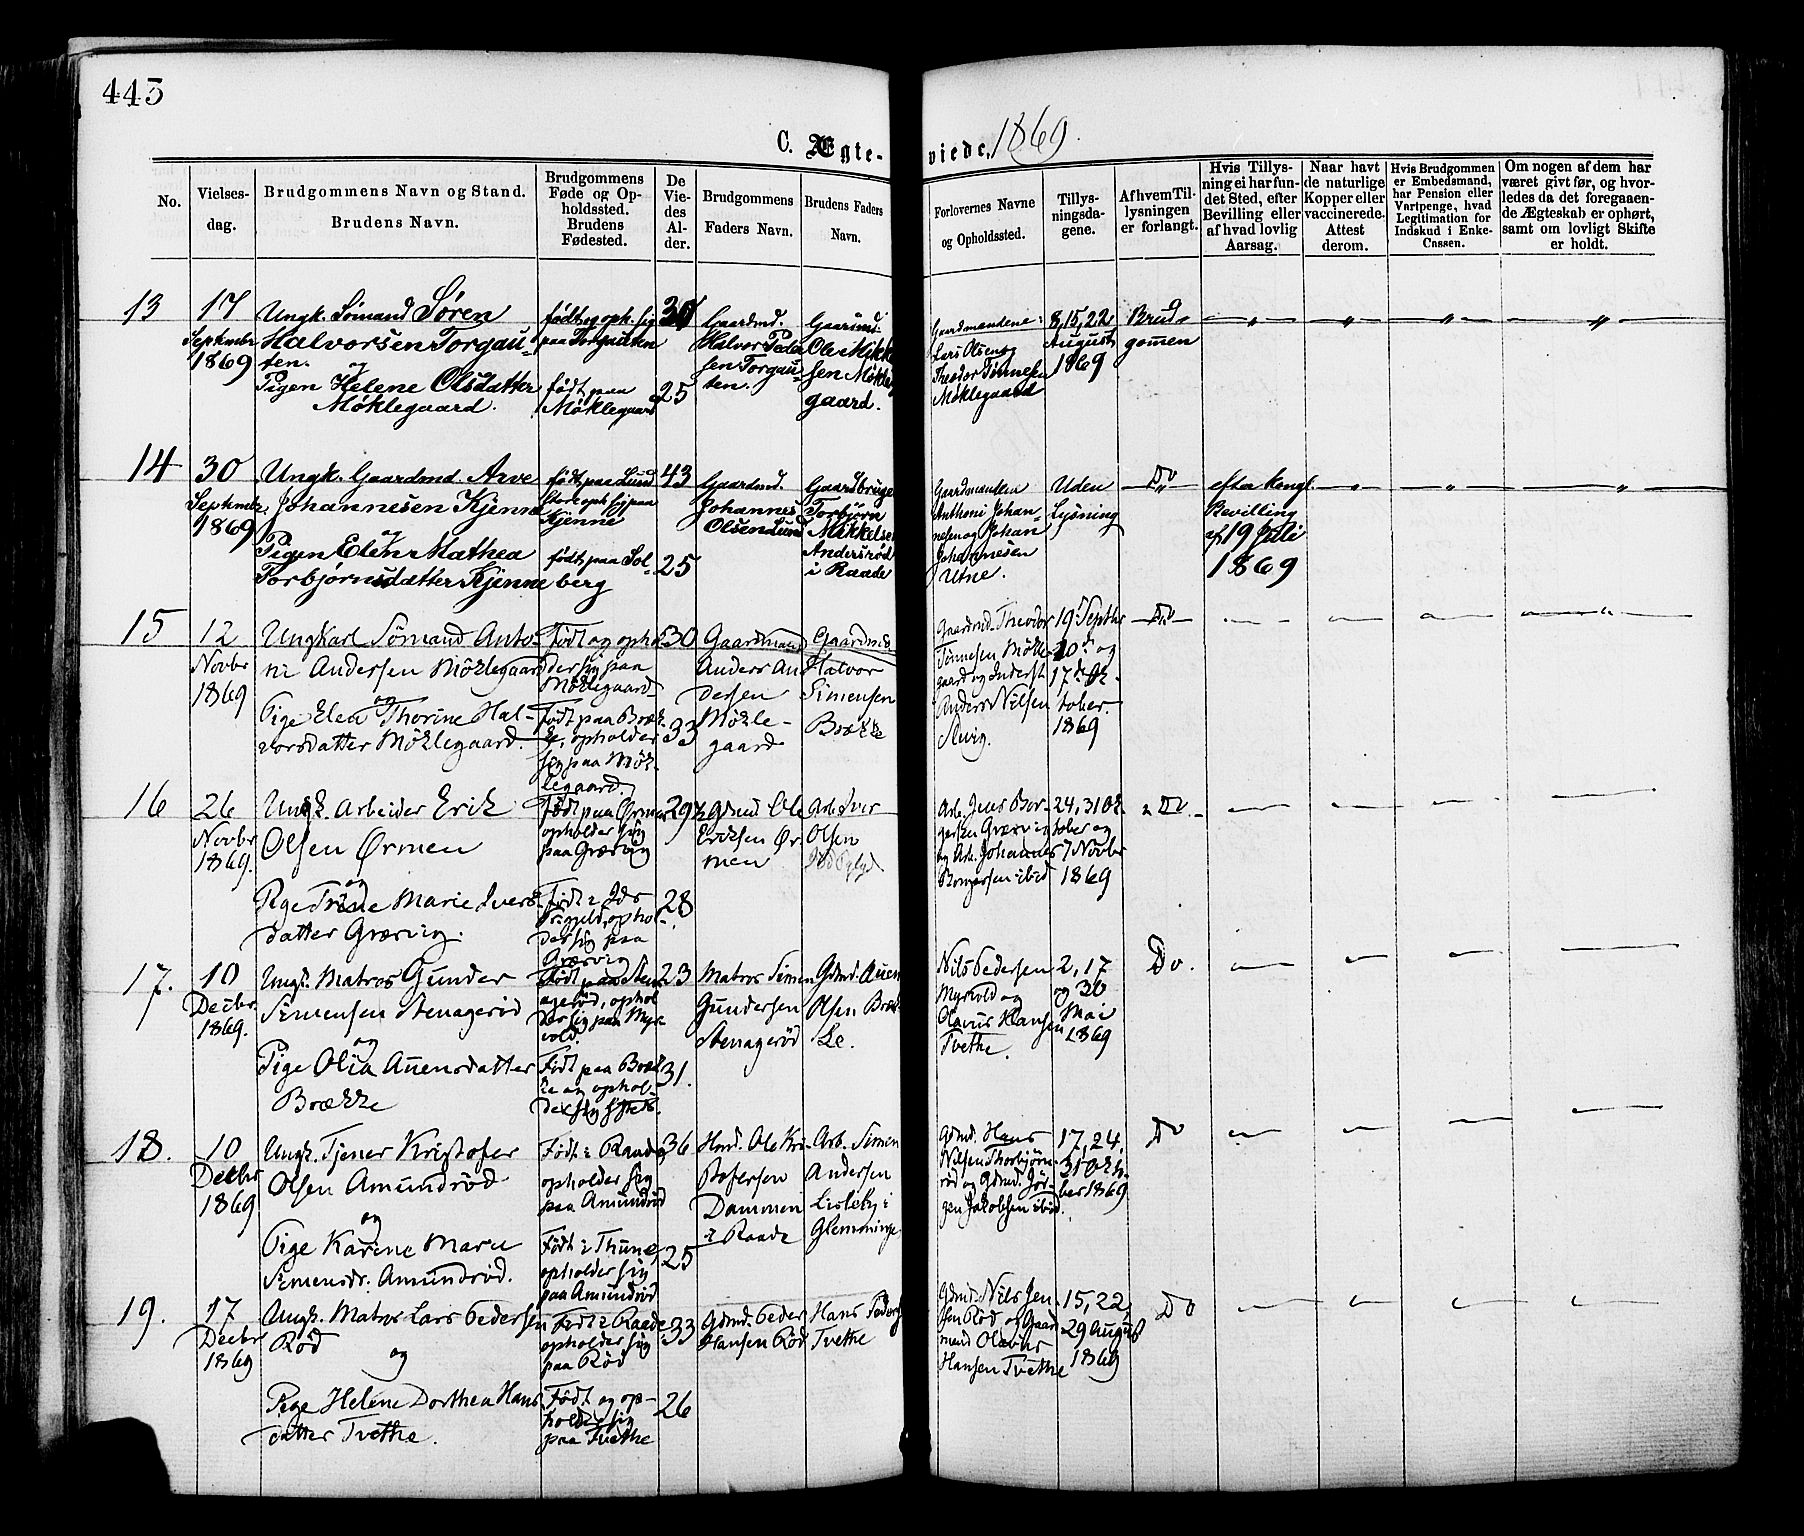 443
C. Ægte-
viede, 1869.
No.
Vielses-
dag.
Brudgommens Navn og Stand.
Brudens Navn.
Brudgommens
Føde og Op-
holdssted.
Brudens
Fødested.
De
Vie-
des
Al-
der.
Brudgommens
Faders Navn.
Brudens Faders
Navn.
Forlovernes Navne
og Opholdssted.
Tillys-
ningsda-
gene.
Af hvem Til-
lysningen
er forlangt.
Hvis Tillys-
ning ei har fun-
det Sted, efter
Bevilling eller
af hvad lovlig
Aarsag.
Naar havt
de naturlige
Kopper eller
vaccinerede.
Attest
derom.
Hvis Brudgommen
er Embedsmand,
har Pension eller
Vartpenge, hvad
Legitimation for
Indskud i Enke-
Cassen.
Om nogen af dem har
været givt før, og hvor-
ledes da det foregaaen-
de Ægteskab er ophørt,
samt om lovligt Skifte
er holdt.
13
17
September
1869
Ungk. Sömand Sören
Halvorsen Torgau-
ten.
og
Pigen Helene Olsdatter
Møklegaard.
födt og oph. sig
paa Torgauten
födt paa
Møklegaard
25
Gaardmd.
Halvor Peder
sen Torgau-
ten.
Gaardmd.
Ole Mikke
sen Møkle
gaard.
Gaardmændene:
Lars Olsen og
Theodor Tönnesen
Møklegaard
8, 15, 22
August
1869
Brud-
gommen
14
30
September
1869
Ungk. Gaardmd. Arve
Johannesen Kjenne
og
Pigen Elen Mathea
Torbjørnsdatter Kjenne
födt paa Lund
oph. sig paa
Kjenne
födt paa Sol-
berg
43
25
Gaardmd.
Johannes
Olsen Lund
Gaardbruge
Torbjørn
Mikkelse
Andersröd
i Raade
Gaardmanden
Anthoni Johan-
nesen og Johan
Johannesen
Utne.
Uden
Lysning
Do
efter kongl.
Bevilling
af 19 Juli
1869
15
12
Novbr
1869
Ungkarl Sömand Anto-
ni Andersen Møklegaard
og
Pige Elen Thorine Hal-
vorsdatter Møklegaard.
Födt og ophol
der sig paa
Møklegaard
Födt paa Bræk-
ke, opholder
sig paa Møk-
legaard.
30
33
Gaardmand
Anders An
dersen
Møkle-
gaard
Gaardmd
Halvor
Simensen
Brække
Gaardmd. Theodor
Tönnesen Møkle-
gaard og Inderst
Anders Nilsen
Slevig.
19 Septbr
10de og
17de Ok-
tober.
1869
Do
16
26
Novbr
1869.
Ungk. Arbeider Erik
Olsen Ørmen
og
Pige Trine Marie Ivers-
datter Græsvig.
Födt paa Ørmen
opholder sig
paa Græsvig
Födt i Id's
Prgjeld, ophol-
der sig paa
Græsvig
29
28
Gdmd Ole
Eriksen Ør
men
Arb. Iver
Olsen
Arb. Jens Bor-
gersen Græsvig
og Arb. Johannes
Borgersen ibid
24, 31 Ok
tober og
7 Novbr
1869
Do
17.
10
Decbr.
1869.
Ungk. Matros Gunder
Simensen Stenageröd
og
Pige Olia Auensdatter
Brække
Födt paa Sten
ageröd, ophol
der sig paa Myr
vold.
Födt paa Bræk
ke og ophol-
der sig sstds.
23
31.
Matros Simen
Gundersen
Stenageröd
Gdmd. Auen
Olsen Bræk
ke.
Nils Pedersen
Myrvold og
Olavus Hansen
Tvethe.
2, 17
og 30
Mai
1869
Do.
18.
10
Decbr
1869
Ungk. Tjener Kristofer
Olsen Amundröd
og
Pige Karine Marie
Simensdr. Amundröd.
Födt i Raade,
opholder sig
paa Amundröd
Födt i Thune,
opholder sig
paa Amundröd
36
25
Hmd. Ole Kri
stofersen
Dammen
i Raade
Arb. Simen
Andersen
Lisleby i
Glemminge
Gdmd. Hans
Nilsen Thorbjørn
röd og Gdmd. Jör-
gen Jakobsen ibid.
17, 24,
31 Okto-
ber 1869.
Do
19.
17
Decbr
1869
Ungk. Matros Lars Pedersen
Röd
og
Pige Helene Dorthea Hans
datter Tvethe.
Födt i Raade
opholder sig
paa Röd
Födt og op-
holder sig
paa Tvethe
33
26
Gdmd. Peder
Hansen Röd
Hans Peders
Tvethe
Gdmd. Nils Jen
sen Röd og Gaard
mand Olavus
Hansen Tvethe
15, 22
29 August
1869
Do